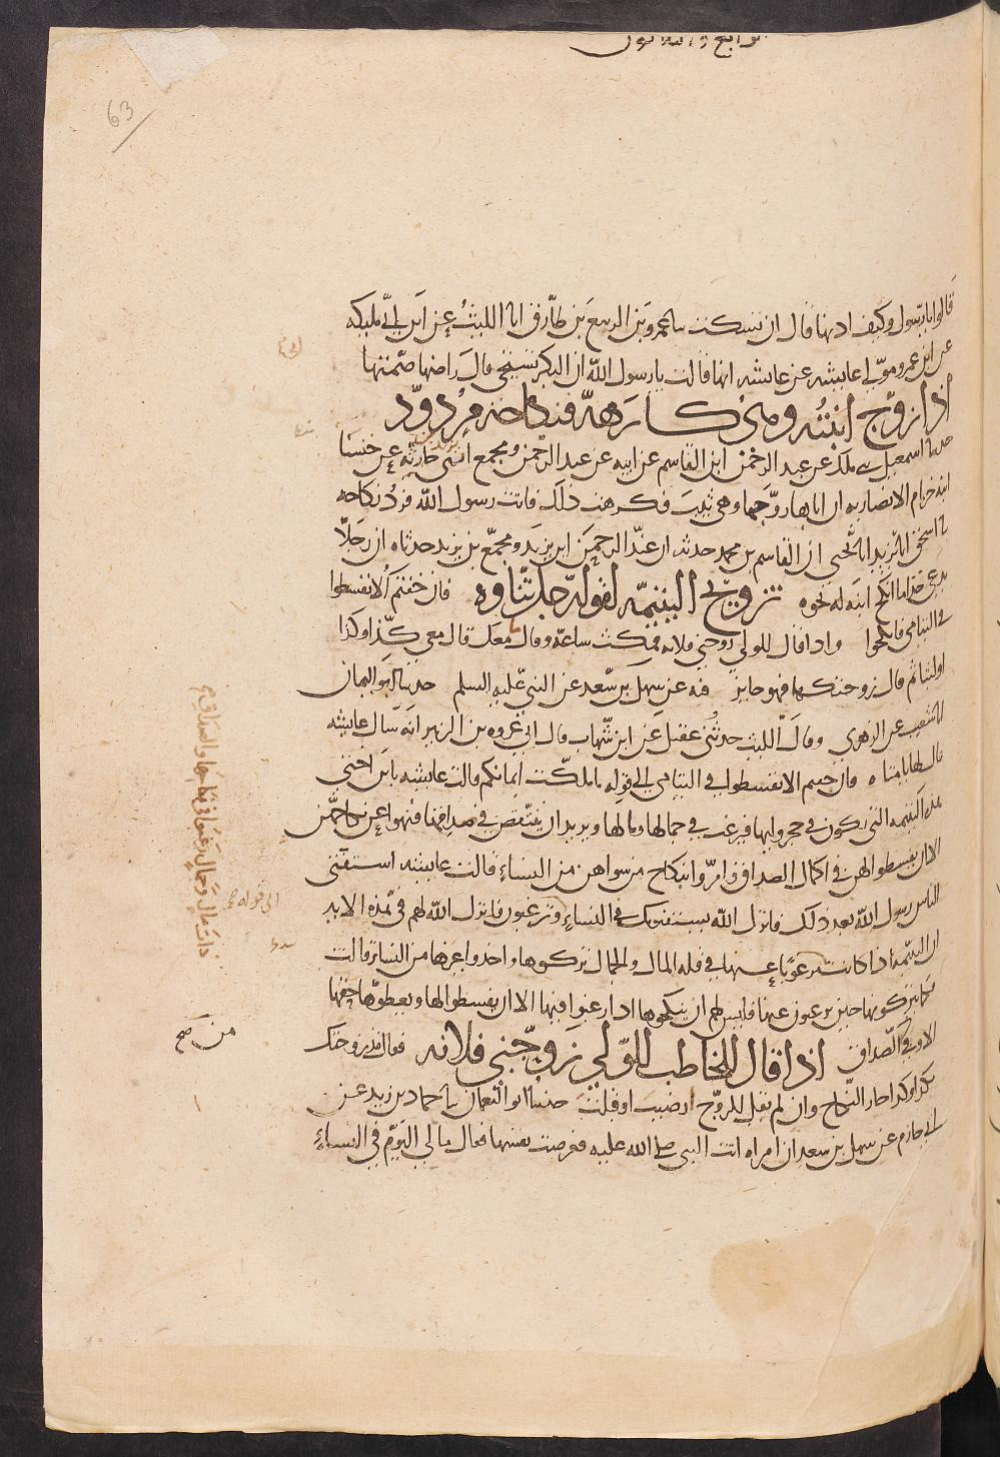 63
قالوا يا رسول وكيف اذنها قال ان تسكت سا عمرو بن الربيع بن طارق انا الليث عن ابن ابي مليكه
عن ابي عمرو مولى عايشه عن عايشه انها قالت يا رسول الله ان البكر تستحي قال رضاها صمتها
اذا زوج ابنته وهي كارهة فنكاحه مردود
حدثنا اسمعيل ملك عن عبد الرحمن ابن القاسم عن ابيه عن عبد الرحمن ومجمع ابني حارثه عن خنسا
ابنه خدام الانصاريه ان اباها زوجها وهي ثيب فكرهت ذلك فاتت رسول الله فرد نكاحه
نا اسحق انا يزيد انا يحيى ان القاسم بن محمد حدثه ان عبد الرحمن ابن يزيد ومجمع بن يزيد حدثاه ان رجلا
يدعى خذاما انكح ابنه له نحوه تزويج اليتيمه لقوله جل ثناوه فان خفتم الا تقسطوا
في اليتامى فانكحوا واذا قال للولي زوجني فلانه فمكث ساعه وقال ما معك قال معي كذا وكذا
او لبثا ثم قال زوجتكها فهو جايز فيه عن سهل بن سعد عن النبي عليه السلم حدثنا ابو اليمان
انا شعيب عن الزهري وقال الليث حدثني عقيل عن ابن شهاب قال اني عروه بن الزبير انه سال عايشه
قال لها يامتاه فان خفتم الا تقسطوا في اليتامى الى قوله ما ملكت ايمانكم قالت عايشه يابن اختي
هذه اليتيمه التي تكون في حجر وليها فيرغب في جمالها ومالها ويريد ان ينتقص في صداقها فنهوا عن نكاحهن
الا ان يقسطوا لهن في اكمال الصداق وامروا بنكاح من سواهن من النساء قالت عايشه استفتى
الناس رسول الله بعد ذلك فانزل الله يستفتونك في النساء وترغبون فانزل الله لهم في هذه الايه
ان اليتيمه اذا كانت مرغوبا عنها في قله المال والجمال تركوها واخذوا غيرها من النسا قالت
فكما يتركونها حين يرغبون عنها فليس لهم ان ينكحوها اذا رغبوا فيها الا ان يقسطوا لها ويعطوها حقها
الاوفى في الصداق اذا قال الخاطب للولي زوجني فلانه فقال قد زوجتك
بكذا وكذا جاز النكاح وان لم يقل للزوج ارضيت او قبلت حدثنا ابو النعمان نا حماد بن زيد عن
ابي حازم عن سهل بن سعد ان امراه اتت النبي صلى الله عليه فعرضت نفسها فقال ما لي اليوم في النساء
ذات مال وجمال رغبوا في نكاحها والصداق
الى قوله
من صح